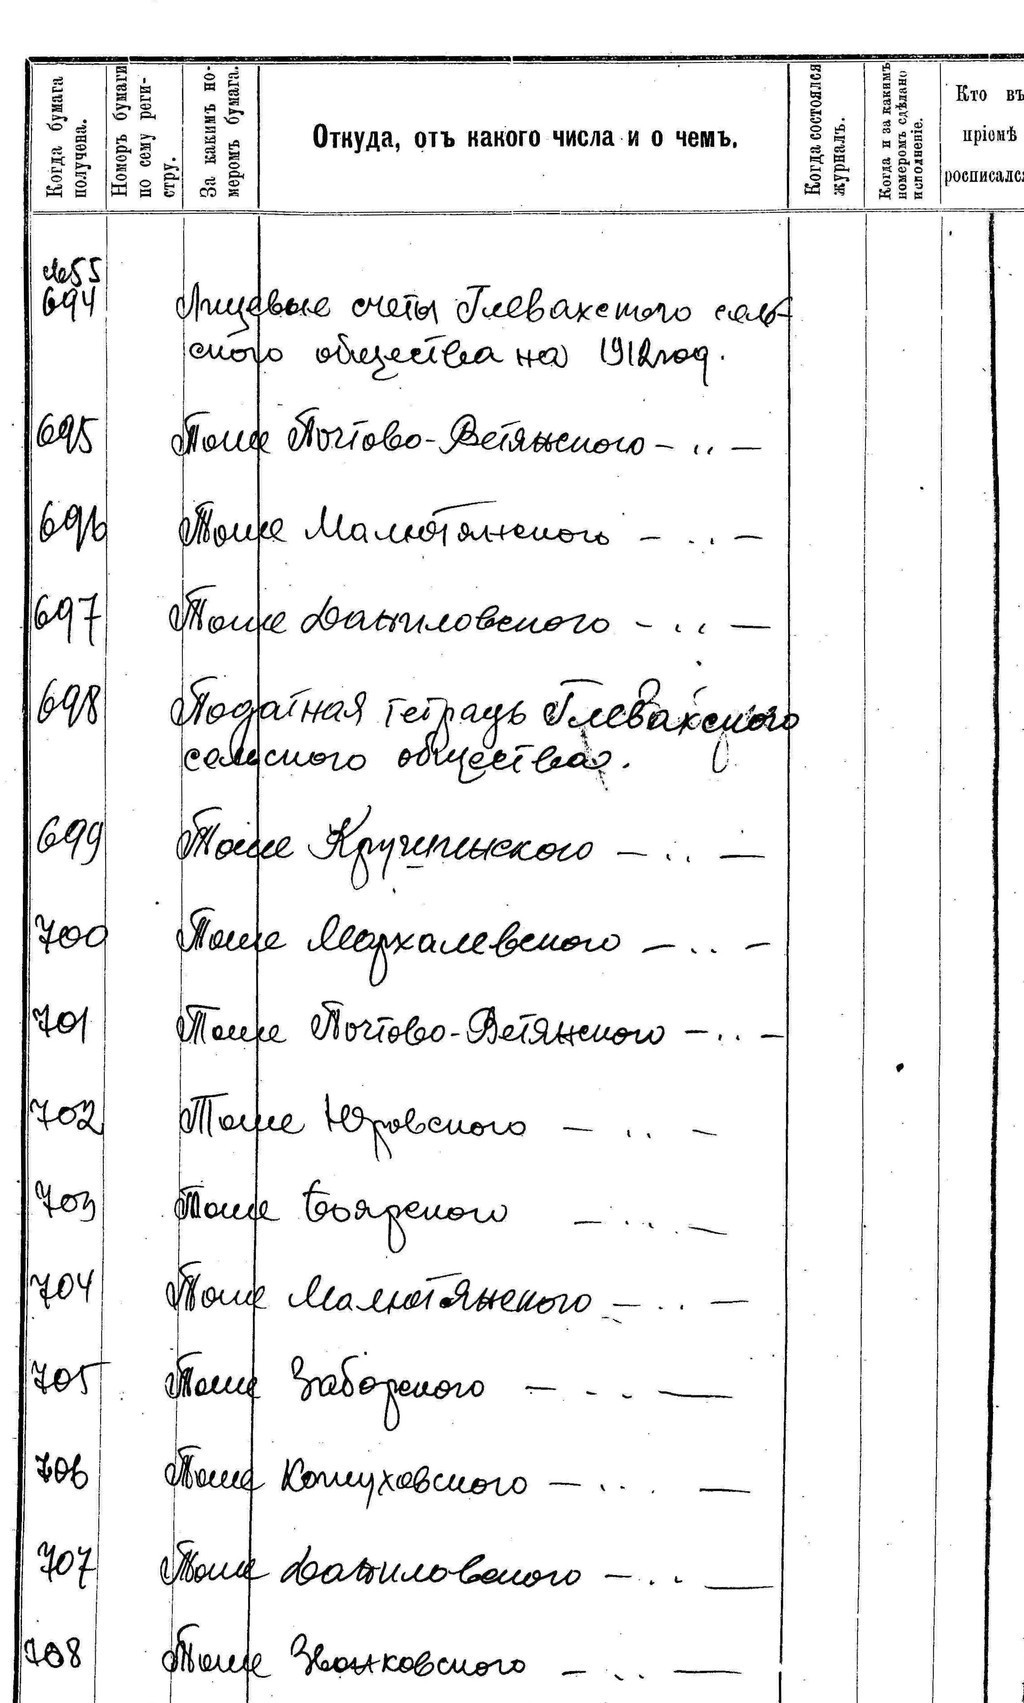 Когда бумага получена.
Номеръ бумаги по сему реги-стру.
За какимъ но-меромъ бумага.
Откуда, отъ какого числа и о чемъ.
Когда состоялся журналъ.
Когда и за какимъ номеромъ сдѣлано исполненіе.
Кто въ
пріемѣ
росписался
№55
694 Лицевые счеты Глевахского сель-
ского общества на 1912 год.
695 Тоже Почтово-Ветянского — " —
696 Тоже Малютянского — " —
697 Тоже Даниловского — " —
698 Податная тетрадь Глевахского
сельского общества.
699 Тоже Кручинского — " —
700 Тоже Мархалевского — " —
701 Тоже Почтово-Ветянского — " —
702 Тоже Юровского — " —
703 Тоже Боярского — " —
704 Тоже Малютянского — " —
705 Тоже Заборского — " —
706 Тоже Кожуховского — " —
707 Тоже Даниловского — " —
708 Тоже Звонковского — " —